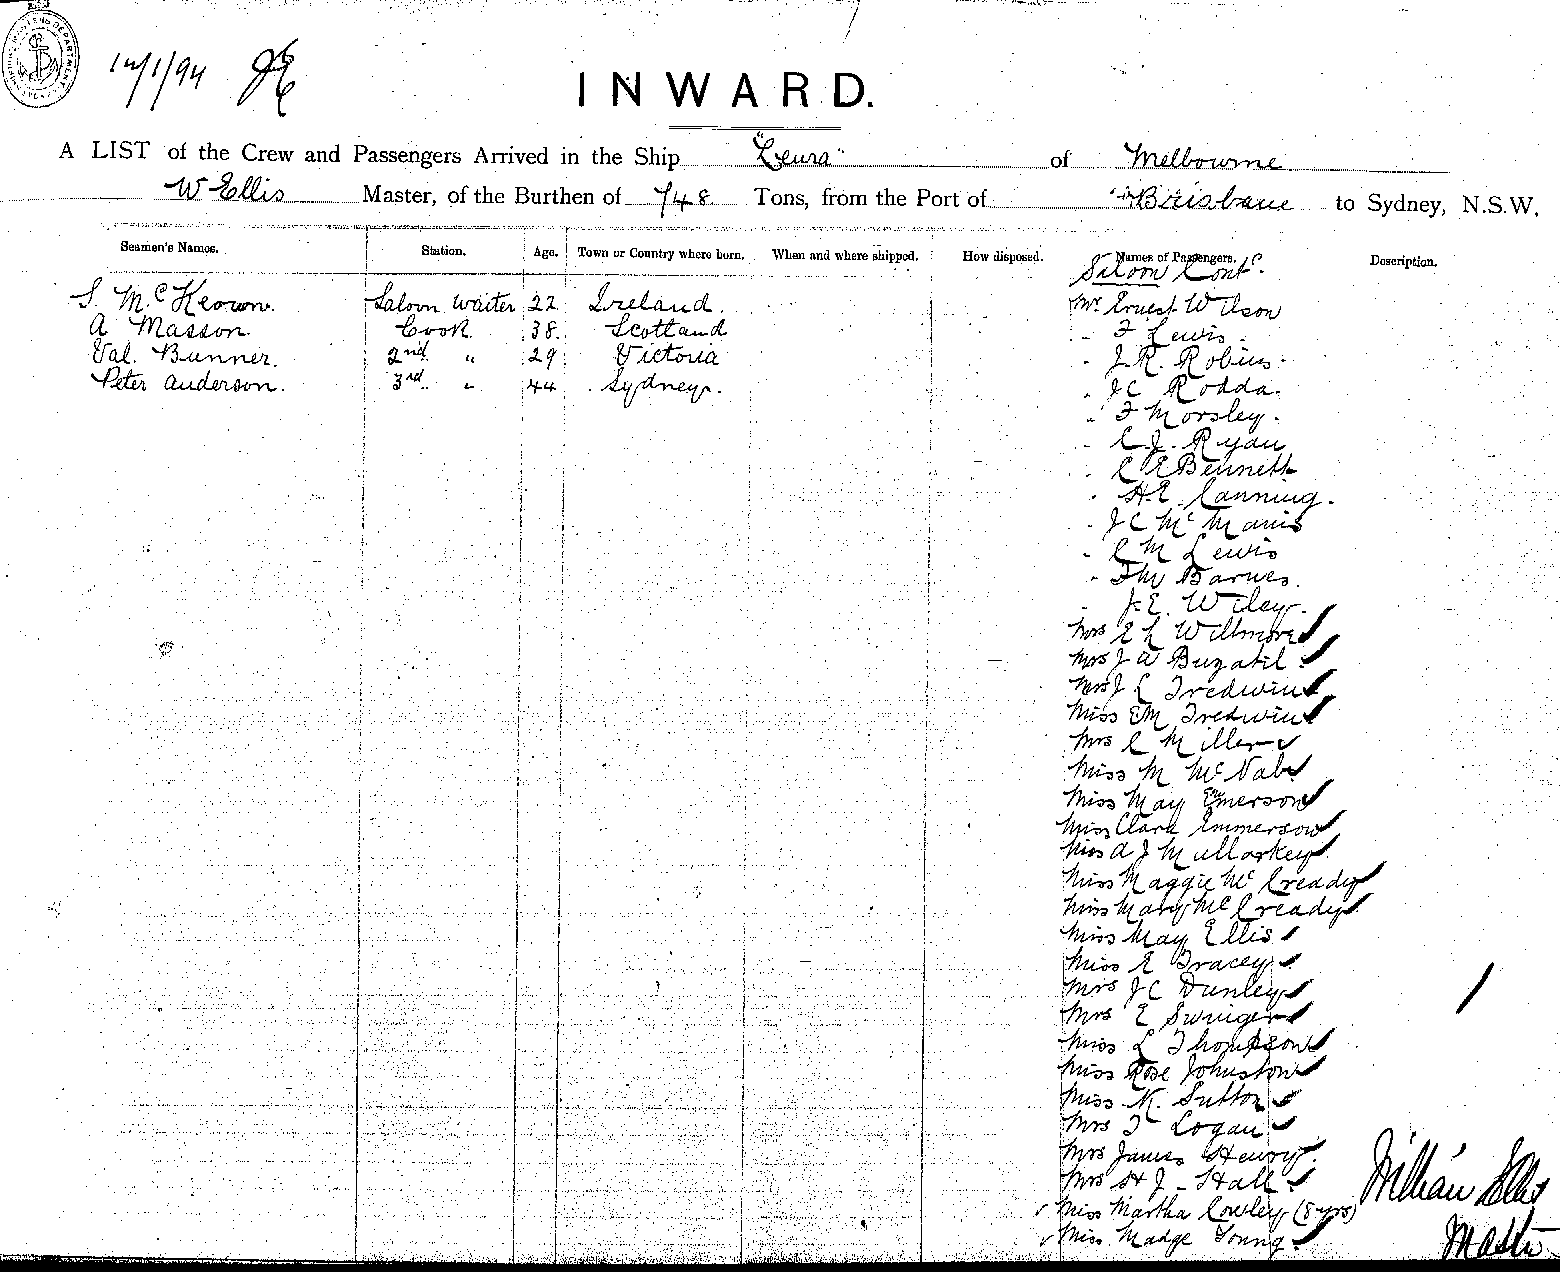 12/1/94
INWARD.
A LIST of the Crew and Passengers Arrived in the Ship "Leura" of Melbourne
W Ellis Master, of the Burthen of 748 Tons, from the Port of Brisbane to Sydney, N.S.W.
Seamen's Names. Station. Age. Town or Country where born. When and where shipped. How disposed. Names of Passengers. Description.
Saloon Contd.
S. McKeown. Saloon Waiter 22 Ireland.
A Masson Cook 38 Scotland
Val. Bunner. 2nd " 29 Victoria
Peter Anderson. 3rd " 44 Sydney.
Mr Ernest Wilson
" F Lewis
" J. R. Robins
" J C Rodda.
" F Morsley.
" C. J. Ryan
" C E Bennett
" H. E. Canning.
" J C McManis
" C M Lewis
" Barnes.
" J. E. Wiley.
Mrs E L Willmore
Mrs J A Buzatil
Mrs J L Tredwin
Miss EM Tredwin
Mrs C Miller
Miss M McNab
Miss May Emerson
Miss Clara Emmerson
Miss A J Mullarkey
Miss Maggie McCready
Miss Mary McCready
Miss May Ellis
Miss E Tracey
Mrs J C Dunley
Mrs E Swinger
Miss L Thompson
Miss Rose Johnston
Miss N. Sutton
Mrs T Logan
Mrs James Henry.
Mrs H J. Hall
Miss Martha Cowley (8 yrs)
Miss Madge Young
William Ellis
Master